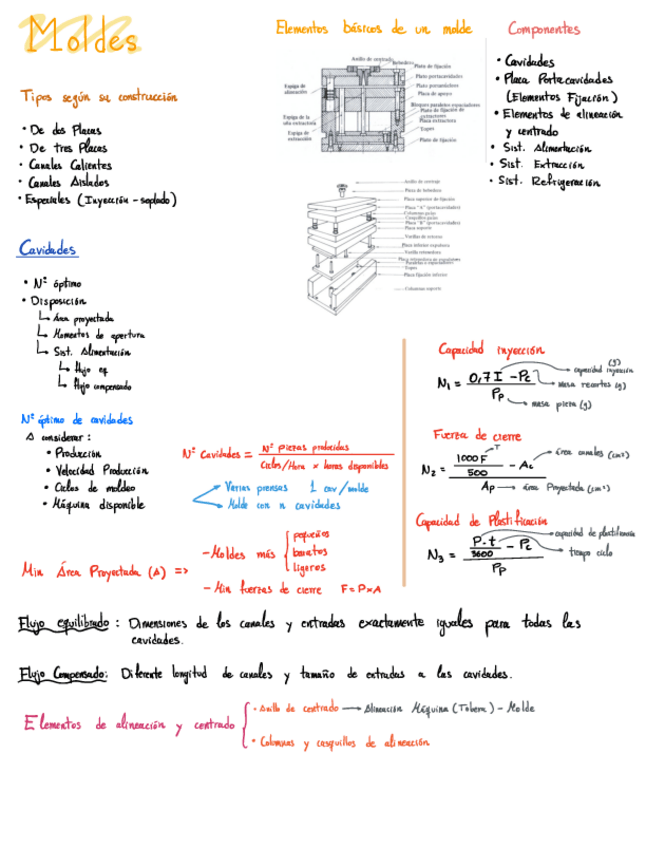 Moldes
Tipos según su construcción
• De dos Placas
• De tres Placas
• Canales Calientes
• Canales Aislados
• Especiales (Inyección - soplado)
Elementos básicos de un molde
Anillo de centrado
Bebedero
Plato de fijación
Plato portacavidades
Plato portamachos
Placa de apoyo
Bloques paralelos espaciadores
Plato de fijación de extractores
Placa extractora
Topes
Plato de fijación
Espiga de alineación
Espiga de la
Espiga de extracción
Anillo de centraje
Pieza de bebedero
Placa superior de fijación
Placa "A" (portacavidades)
Columnas guías
Placa "B" (portacavidades)
Placa soporte
Varillas de retorno
Placa inferior expulsora
Topes
Placa fijación inferior
Columnas soporte
Componentes
• Cavidades
• Placa Portacavidades
(Elementos Fijación)
• Elementos de alineación
y centrado
• Sist. Alimentación
• Sist. Extracción
• Sist. Refrigeración
Cavidades
• Nº óptimo
• Disposición
Área proyectada
Momentos de apertura
Sist. Alimentación
Flujo eq.
Flujo compensado
Nº óptimo de cavidades
A considerar:
• Producción
• Velocidad Producción
• Ciclos de moldeo
• Máquina disponible
Nº Cavidades = Nº Piezas producidas
Ciclos/Hora × horas disponibles
Varias prensas 1 cav/molde
Molde con n cavidades
Min Área Proyectada (A) =>
- Moldes más { pequeños
baratos
ligeros
- Min fuerzas de cierre F = P×A
Capacidad inyección
N₁ = 0,7 I - Pc
Pp
capacidad inyección (g)
masa recortes (g)
masa pieza (g)
Fuerza de cierre
N₂ = 1000 F
500
- Ac
Ap
T
área canales (cm²)
área Proyectada (cm²)
Capacidad de Plastificación
N₃ = P·t
3600
- Pc
Pp
tiempo ciclo
Flujo equilibrado: Dimensiones de los canales y entradas exactamente iguales para todas las
cavidades.
Flujo Compensado: Diferente longitud de canales y tamaño de entradas a las cavidades.
Elementos de alineación y centrado
• Anillo de centrado → Alineación Máquina (Tobera) - Molde
• Columnas y casquillos de alineación